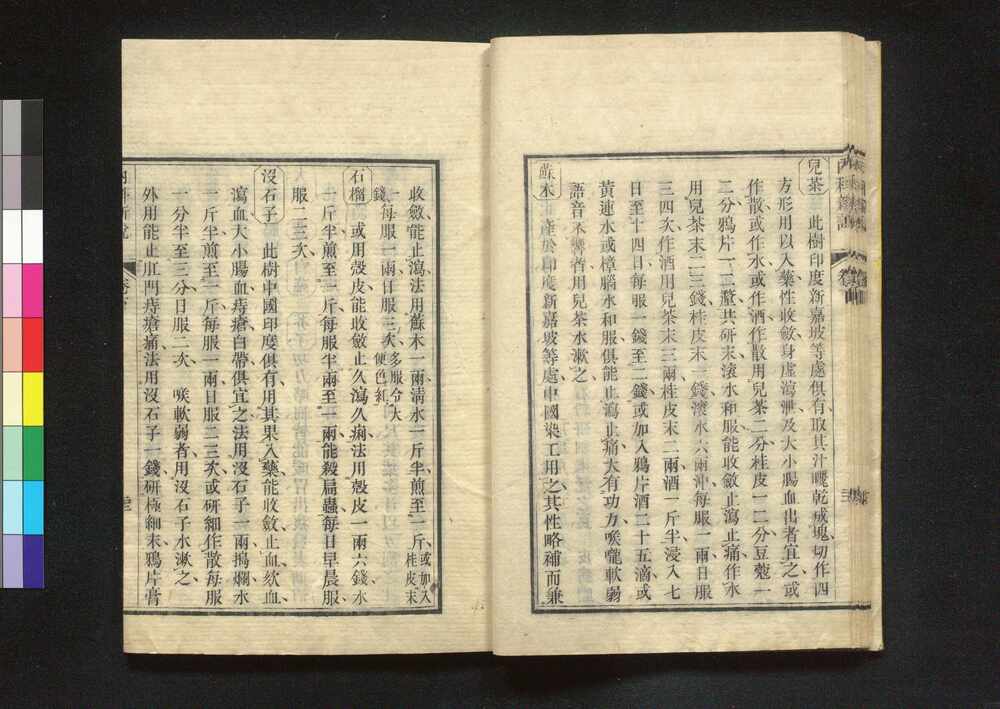 兒茶 此樹印度新嘉坡等處俱有取其汁曬乾成塊切作四
方形用以入藥性收斂身虛瀉泄及大小腸血出者宜之或
作散或作水或作酒作散用兒茶二分桂皮一二分豆蔻一
二分鴉片一二釐共研末滾水和服能收斂止瀉止痛作水
用兒茶末二三錢桂皮末一錢滾水六兩沖每服一兩日服
三四次作酒用兒茶末三兩桂皮末二兩酒一斤半浸入七
日至十四日每服一錢至二錢或加入鴉片酒二十五滴或
黃連水或樟腦水和服俱能止瀉止痛大有功力喉嚨軟弱
語音不響者用兒茶水漱之
蘇木 產於印度新嘉坡等處中國染工用之其性略補而兼
收斂能止瀉法用蘇木一兩淸水一斤半煎至一斤或加入桂皮末
一錢每服一兩日服三次多服令大便色紅
石榴 或用殼皮能收斂止久瀉久痢法用殼皮一兩六錢水
一斤半煎至一斤每服半兩至一兩能殺扁蟲每日早晨服
服二三次
沒石子 此樹中國印度俱有用其果入藥能收斂止血紋血
瀉血大小腸血痔瘡白帶俱宜之法用沒石子一兩搗爛水
一斤半煎至一斤每服一兩日服二三次或研細作散每服
一分半至三分日服二次 咲軟弱者用沒石子水漱之
外用能止肛門痔瘡痛法用沒石子一錢研極細末鴉片膏